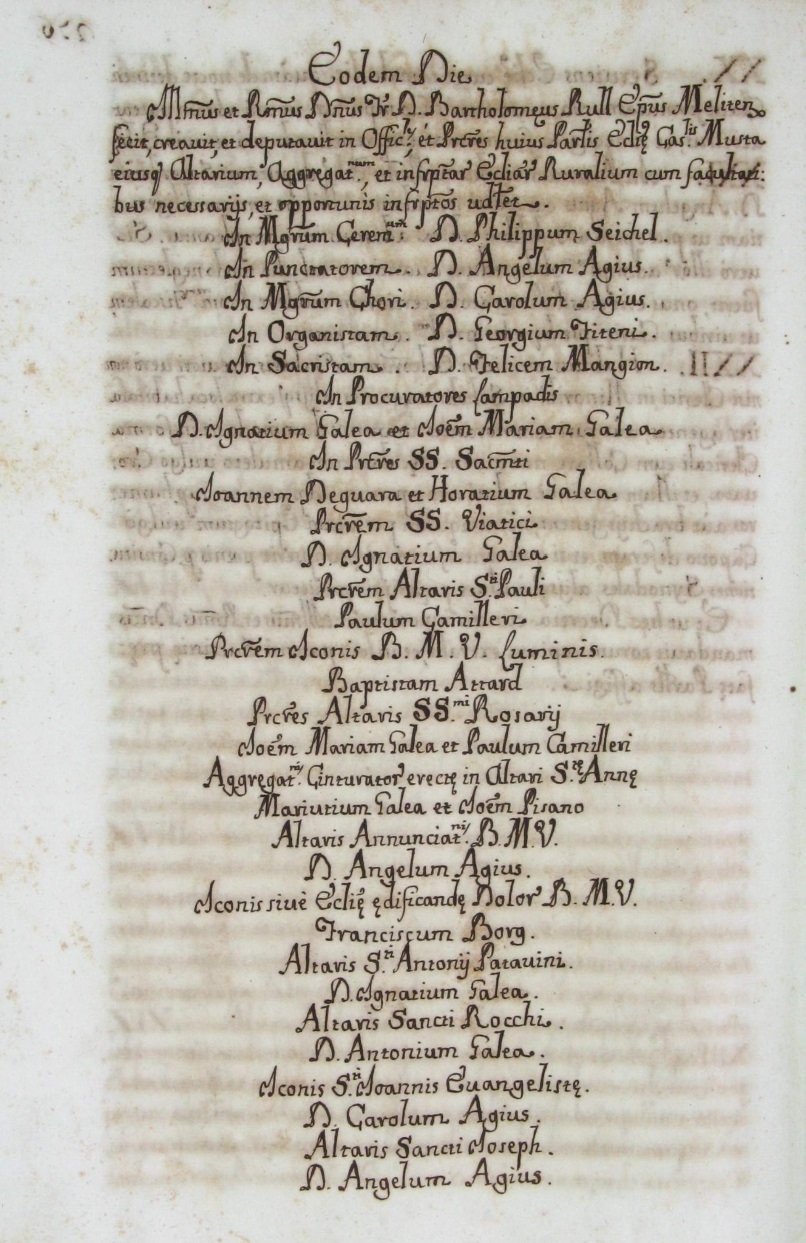 Eodem Die
Illmus et Rmus Dnus Fr D. Bartholomeus Rull Epus Meliten
fecit, creavit, et deputavit in Offic.les et Prcres huius Parlis Eclie Cas.lis Musta
eiusq Altarium, Aggregat.num, et infrptar Ecliar Ruralium cum facultati:
bus necessarijs, et opportunis infrptos vdlet.
In Mgrum Cerem.rum D. Philippum Seichel.
In Punctatorem. D. Angelum Agius.
In Mgrum Chori. D. Carolum Agius.
In Organistam. D. Georgium Fiteni.
In Sacristam. D. Felicem Mangion.
In Procuratores Lampadis
D. Ignatium Galea et Ioem Mariam Galea
In Prcres SS. Sacmti
Ioannem Deguara et Horatium Galea
Prcrem SS. Viatici
D. Ignatium Galea
Prcrem Altaris S.ti Pauli
Paulum Camilleri
Prcrem Iconis B. M. V. Luminis.
Baptistam Attard
Prcres Altaris SS.mi Rosarij
Ioem Mariam Galea et Paulum Camilleri
Aggregat.nis Cinturator erectę in Altari S.tę Annę
Mariutium Galea et Ioem Pisano
Altaris Annunciat.nis B. M. V.
D. Angelum Agius.
Iconis sivè Eclię ędificandę Dolor B. M. V.
Franciscum Borg.
Altaris S.ti Antonij Patavini.
D. Ignatium Galea.
Altaris Sancti Rocchi.
D. Antonium Galea.
Iconis S.ti Ioannis Euangelistę.
D. Carolum Agius.
Altaris Sancti Ioseph.
D. Angelum Agius.